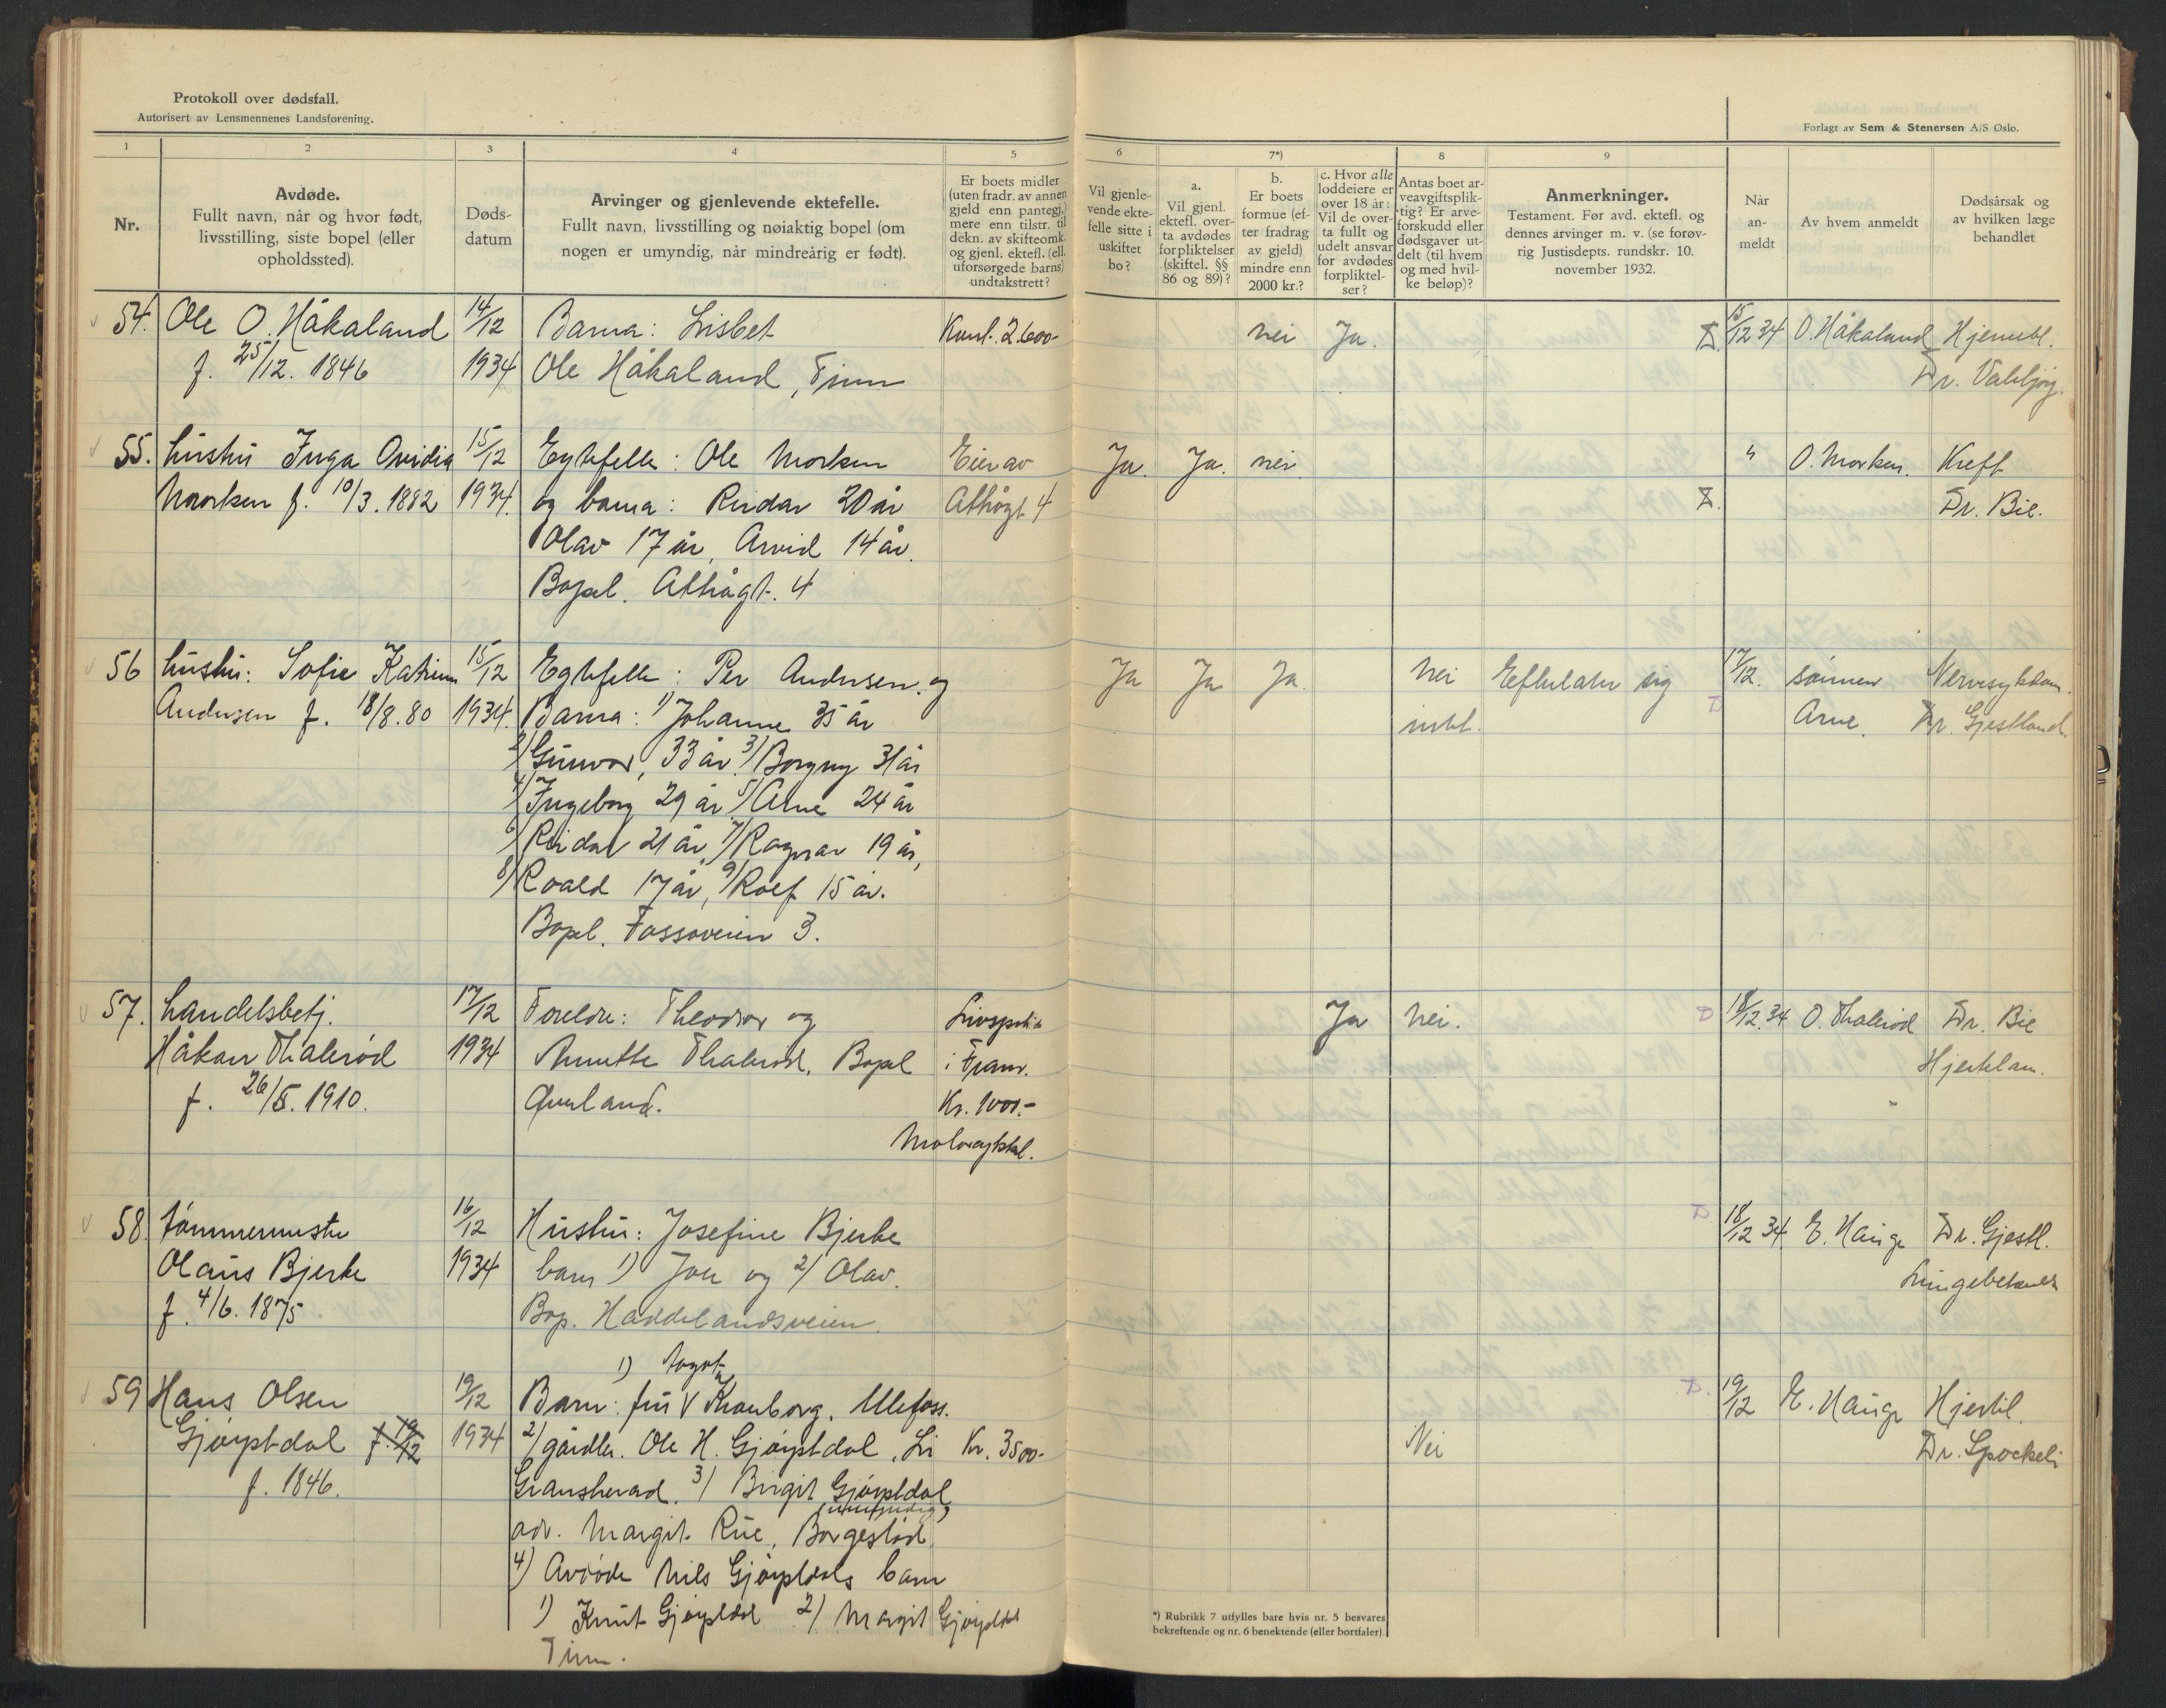 Protokoll over dødsfall.
Autorisert av Lensmennenes Landsforening.
Forlagt av Sem & Stenersen A/S Oslo.
1
2
3
4
5
6
7*)
8
9
Nr.
Avdøde.
Fullt navn, når og hvor født,
livsstilling, siste bopel (eller
opholdssted).
Døds-
datum
Arvinger og gjenlevende ektefelle.
Fullt navn, livsstilling og nøiaktig bopel (om
nogen er umyndig, når mindreårig er født).
Er boets midler
(uten fradr. av annen
gjeld enn pantegj.)
mere enn tilstr. til
dekn. av skifteomk.
og gjenl. ektefl. (ell.
uforsørgede barns)
undtakstrett?
Vil gjenle-
vende ekte-
felle sitte i
uskiftet
bo?
a.
Vil gjenl.
ektefl. over-
ta avdødes
forpliktelser
(skiftel. §§
86 og 89)?
b.
Er boets
formue (ef-
ter fradrag
av gjeld)
mindre enn
2000 kr.?
c. Hvor alle
loddeiere er
over 18 år:
Vil de over-
ta fullt og
udelt ansvar
for avdødes
forpliktel-
ser?
Antas boet ar-
veavgiftsplik-
tig? Er arve-
forskudd eller
dødsgaver ut-
delt (til hvem
og med hvil-
ke beløp)?
Anmerkninger.
Testament. Før avd. ektefl. og
dennes arvinger m. v. (se forøv-
rig Justisdepts. rundskr. 10.
november 1932.
Når
an-
meldt
Av hvem anmeldt
Dødsårsak og
av hvilken læge
behandlet
54. Ole O. Håkaland 14/12 Barna: Lisbet 2600- nei Ja. 15/12 34 O. Håkaland Hjernebl.
f. 25/12. 1846 1934 Ole Håkaland, Tinn Dr.
55. hustru Inga Ovidia 15/12 Egtefelle: Ole Morken Eier av Ja. Ja. nei " O. Morken. Kreft
Morken f. 10/3. 1882 1934. og barna: Reidar 20 år 4 Dr. Bie.
Olav 17 år, Arvid 14 år.
Bopel. 4
56 hustru: Sofie Katrine 15/12 Egtefelle: Per Andersen og Ja Ja Ja. Nei Efterlater sig 17/12. sønnen Nervesykdom.
Andersen f. 18/8. 80 1934. Barna: 1) Johanne 35 år intet. Arne. Dr. Gjestland.
2) Gunvor, 33 år. 3) Borgny 31 år
4) Ingeborg 29 år 5) Arne 24 år
6) Reidar 21 år, 7) Ragnar 19 år,
8) Roald 17 år, 9) Rolf 15 år.
Bopel. Fossoveien 3.
57. handelsbetj. 17/12 Foreldre: Theodor og Livspolis Ja Nei. D 18/12. 34 O. Thalerød Dr. Bie
Håkon Thalerød 1934 Annette Thalerød. Bopel i Fram. Hjertelam.
f. 26/5. 1910. Øverland. Kr. 1000.-
Motorsykkel.
58 tømmermester 16/12 Hustru: Josefine Bjerke D 18/12 34 E. Hauge Dr. Gjestl.
Olaus Bjerke 1934 barn 1) og 2) Olav. Lungebetennelse
f. 4/6. 1875 Bop. Haddelandsveien.
1) fogot
59 Hans Olsen 19/12 Barn: fru V Kronborg, Ulefoss. D. 19/12 E. Hauge Hjertel.
Gjøystdal f. 19/12 1934 2) gårdbr. Ole H. Gjøystdal, Li Kr. 3500- Nei Dr.
f. 1846. Gransherad. 3) Birgit Gjøystdal
(umyndig)
adr. Margit Rue, Borgestad
4) Avdøde Nils Gjøystdals barn
1) Knut Gjøystdal 2) Margit Gjøystdal
Tinn.
*) Rubrikk 7 utfylles bare hvis nr. 5 besvares
bekreftende og nr. 6 benektende (eller bortfaler).